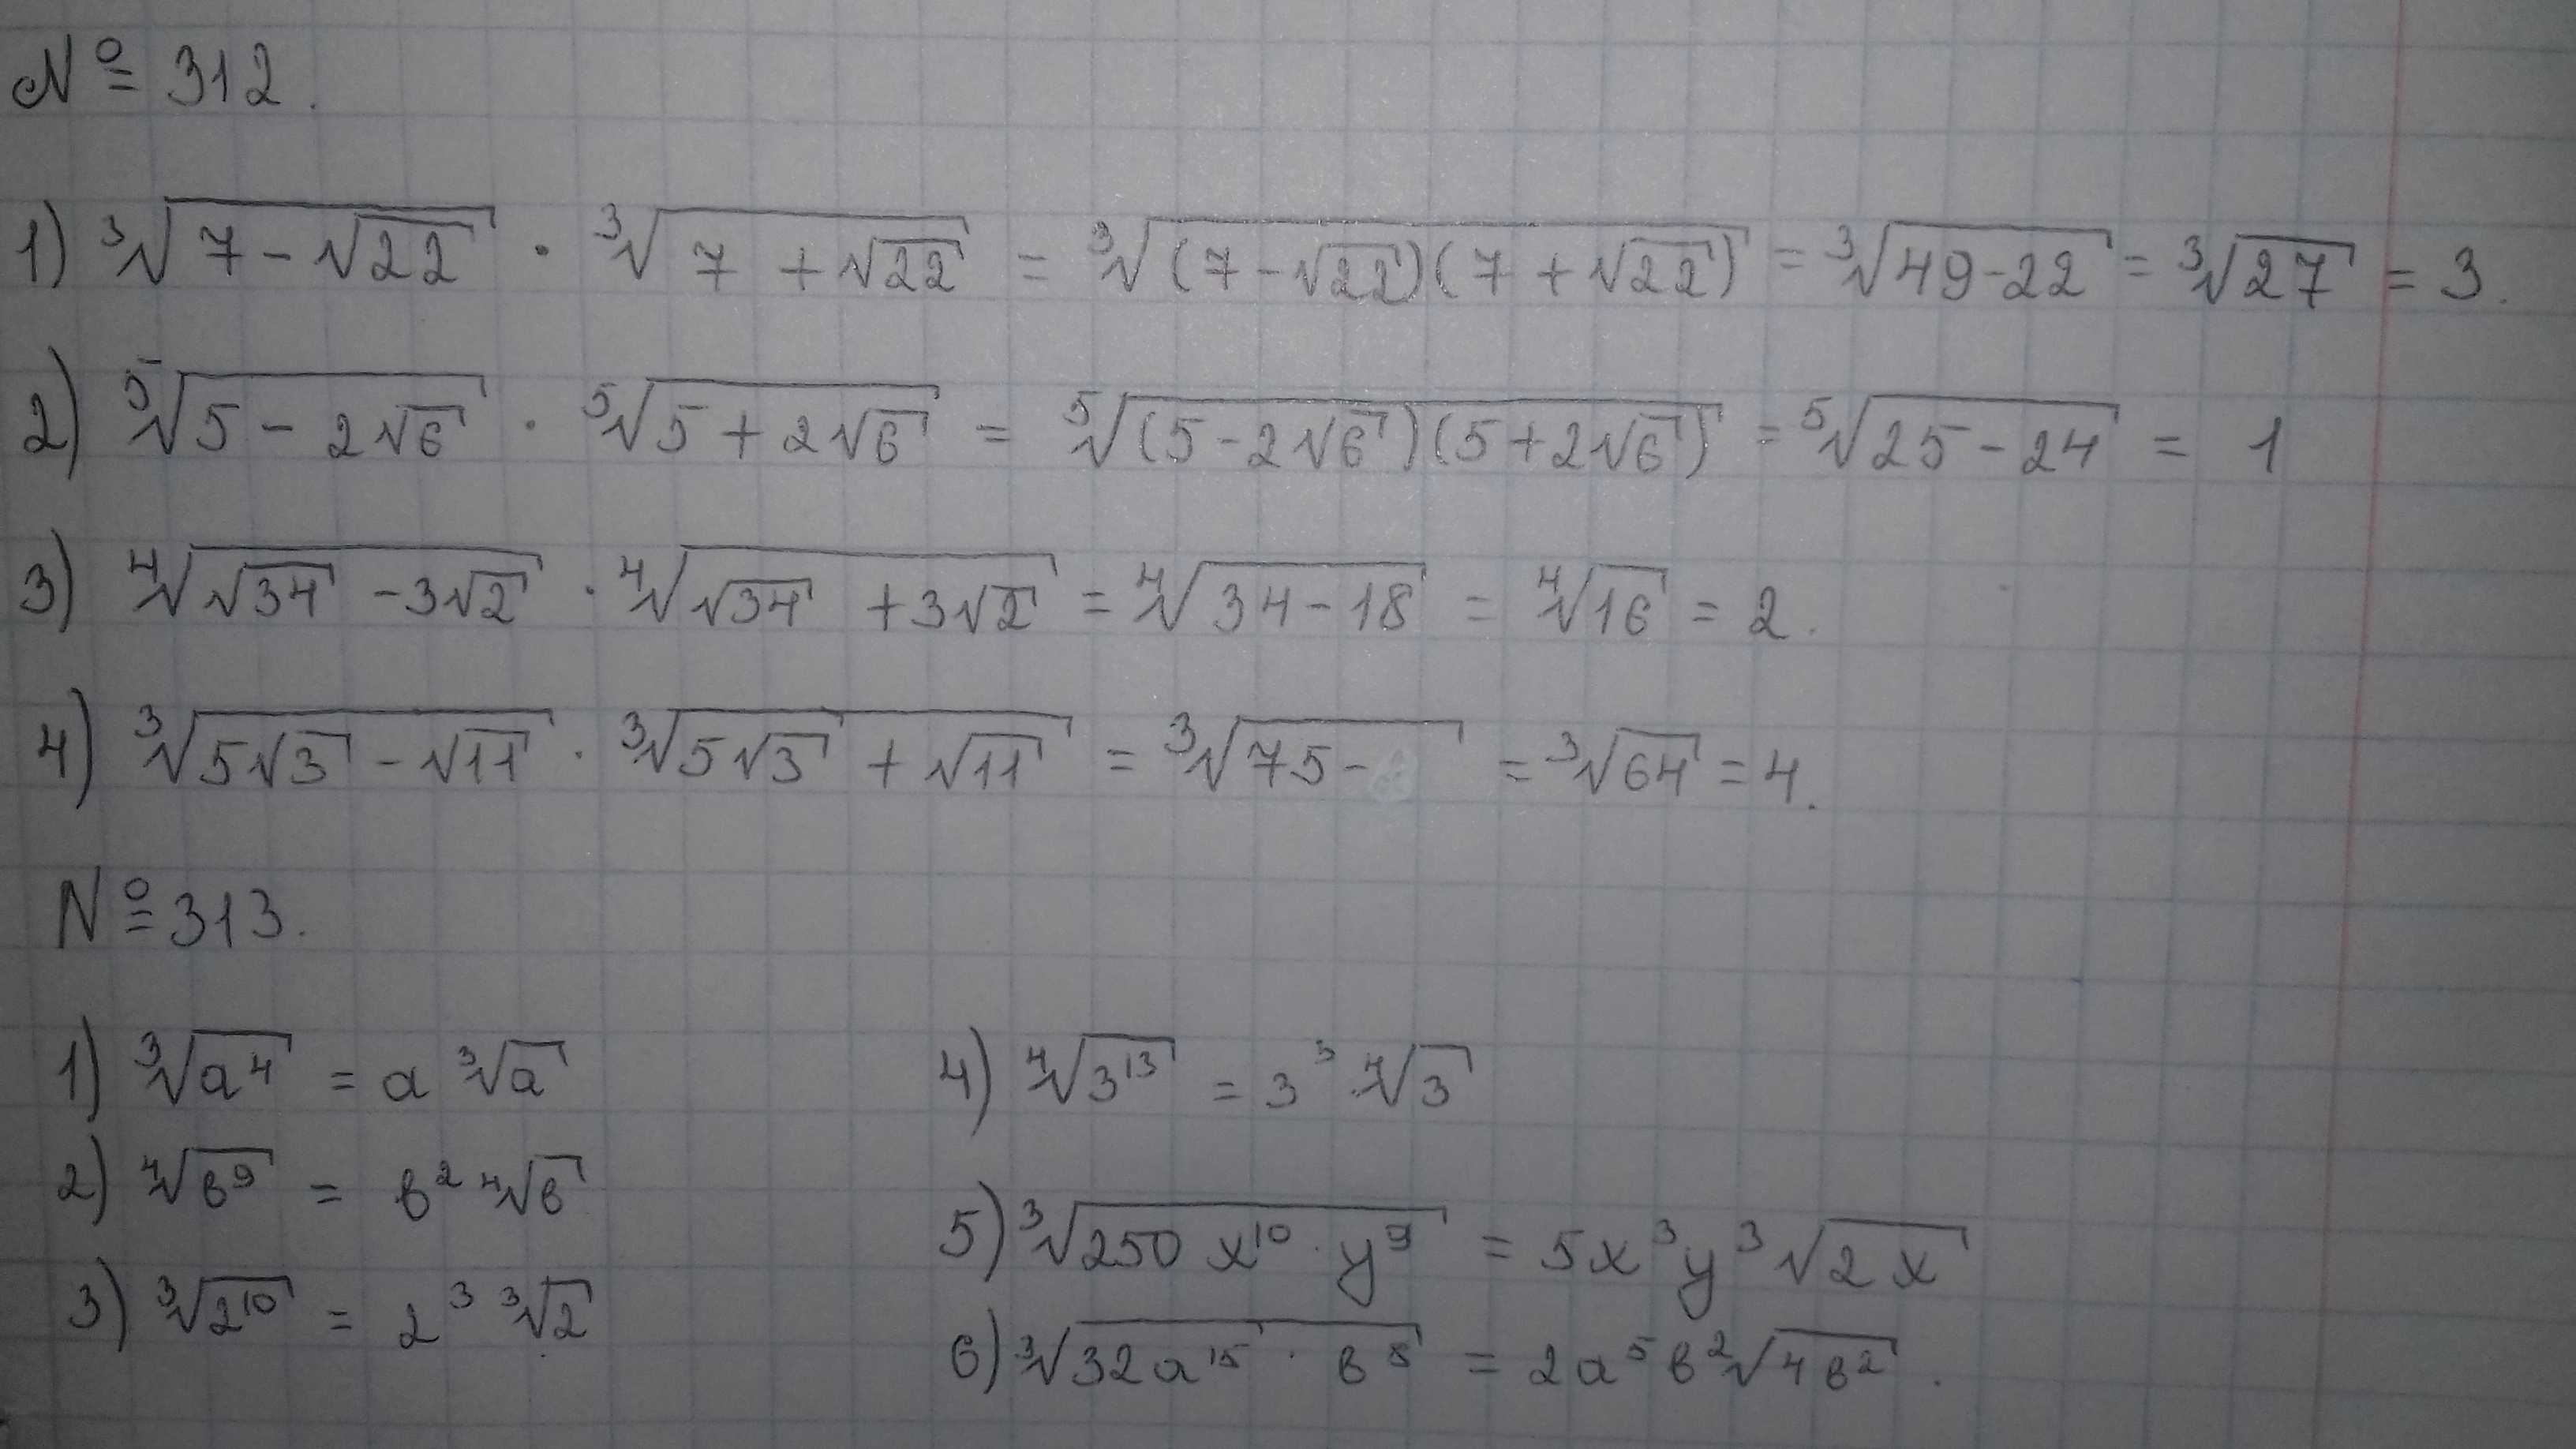 № 312.
1) ∛(7 - √22) · ∛(7 + √22) = ∛((7 - √22)(7 + √22)) = ∛(49 - 22) = ∛27 = 3.
2) ⁵√(5 - 2√6) · ⁵√(5 + 2√6) = ⁵√((5 - 2√6)(5 + 2√6)) = ⁵√(25 - 24) = 1
3) ⁴√(√34 - 3√2) · ⁴√(√34 + 3√2) = ⁴√(34 - 18) = ⁴√16 = 2.
4) ∛(5√3 - √11) · ∛(5√3 + √11) = ∛(75 - ) = ∛64 = 4.
№ 313.
1) ∛a⁴ = a ∛a
2) ⁴√в⁹ = в² ⁴√в
3) ∛2¹⁰ = 2³ ∛2
4) ⁴√3¹³ = 3³ · ⁴√3
5) ∛(250 x¹⁰ · y⁹) = 5x³y³√(2x)
6) ∛(32a¹⁵ · в⁸) = 2a⁵в²√(4в²).